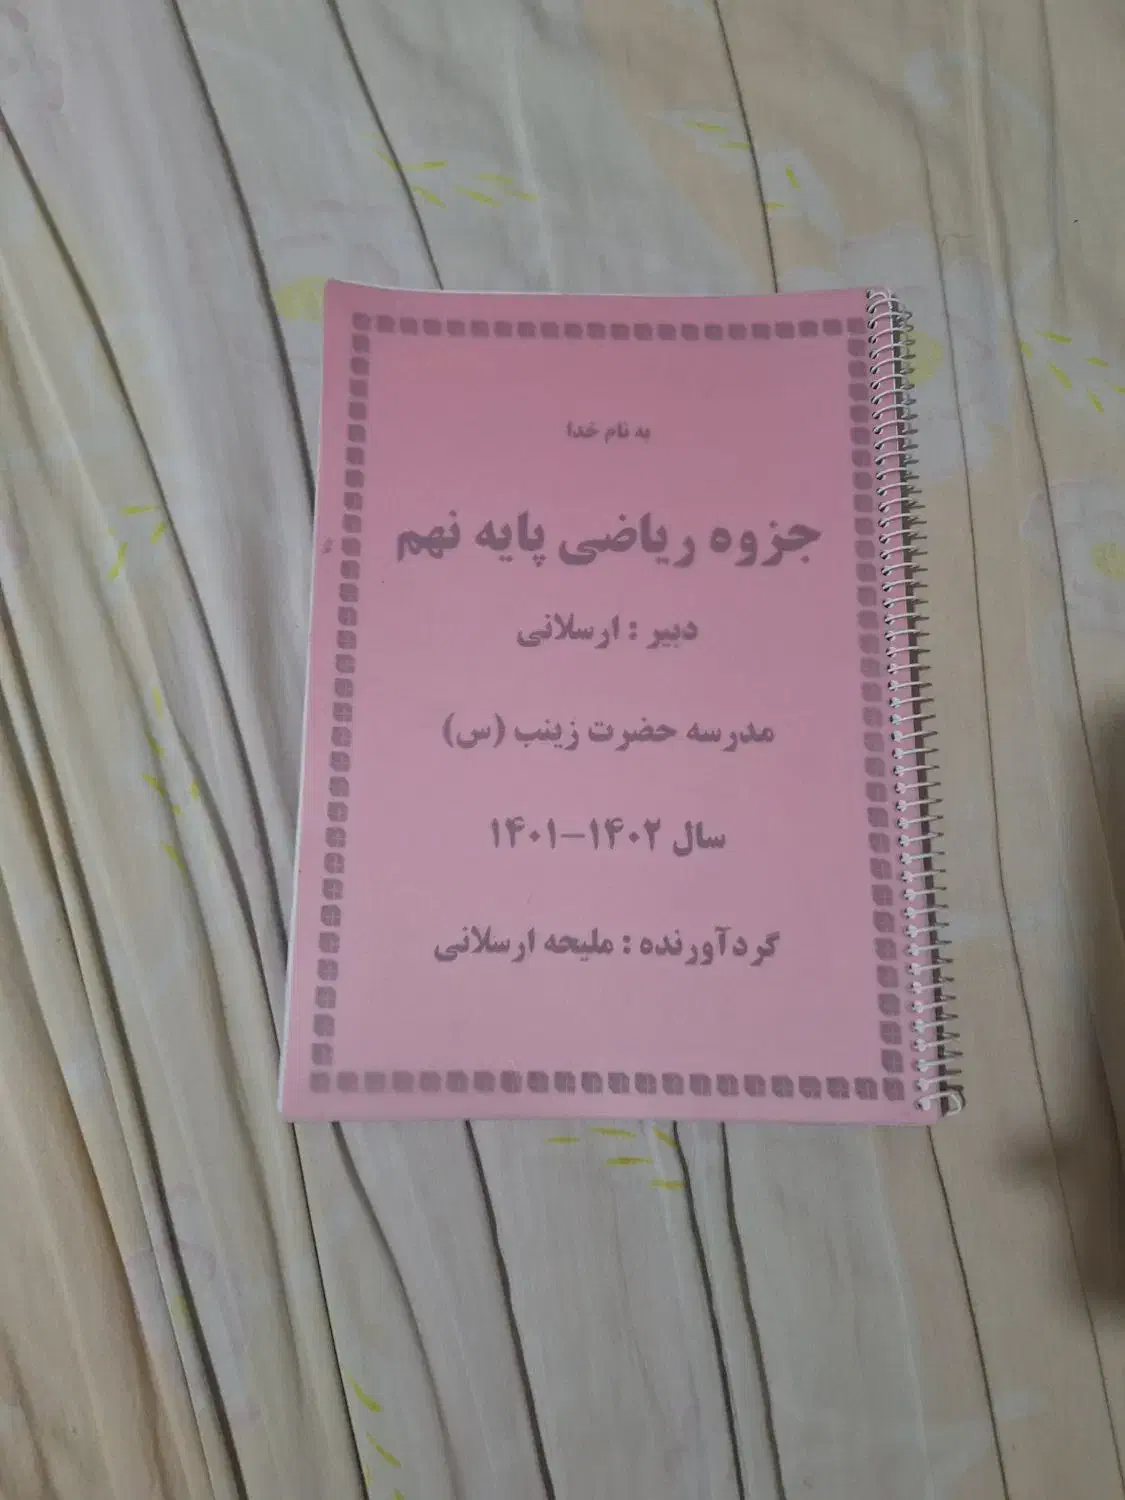 به نام خدا
جزوه ریاضی پایه نهم
دبیر : ارسلانی
مدرسه حضرت زینب (س)
سال ۱۴۰۲-۱۴۰۱
گردآورنده : ملیحه ارسلانی